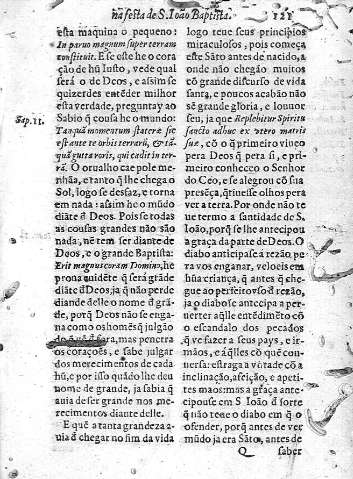 na festa de S. Ioão Baptista. 121
esta maquina o pequeno:
In paruo magnum super terram
constituit. E se este he o cora
ção de hũ Iusto, vede qual
será o de Deos, e assim se
quizerdes entẽder milhor
esta verdade, preguntay ao
Sabio q̃ cousa he o mundo:
Sap. 11.
Tanquã momentum stateræ sic
est ante te orbis terrarũ, & tã-
quã gutta roris, qui cadit in ter-
rã. O orualho cae pole me-
nhãa, e tanto q̃ lhe chega o
Sol, logo se desfaz, e torna
em nada: assim he o mudo
diãte d̃ Deos. Pois se todas
as cousas grandes não são
nada, nẽ tem ser diante de
Deos, e o grande Baptista:
Erit magnus coram Domino, he
proua uidẽte q̃ será grãde
diãte d̃ Deos, ja q̃ não perde
diande delle o nome d̃ grã-
de, porq̃ Deos não se enga-
na como os homẽs q̃ julgão
do q̃ ẽ fara, mas penetra
os corações, e sabe julgar
dos merecimentos de cada
hũ, e por isso quãdo lhe deu
nome de grande, ja sabia q̃
auia de ser grande nos me-
recimentos diante delle.
E quẽ a tanta grandeza a-
uia d̃ chegar no fim da vida
logo teue seus principios
miraculosos, pois começa
este Sãto antes de nacido, a
onde não chegão muitos
cõ grande discurso de vida
santa, e poucos acabão não
sẽ grande gloria, e louuor
seu, ja que Replebitur Spiritu
sancto adhuc ex vtero matris
suæ, cõ o q̃ primeiro viueo
pera Deos q̃ pera si, e pri-
meiro conheceo o Senhor
do Céo, e se alegrou cõ sua
presẽça, q̃ tiuesse olhos pera
ver a terra. Por onde não te
ue termo a santidade de S.
Ioão, porq̃ se lhe antecipou
a graça da parte de Deos. O
diabo anticipase á rezão pe
ra vos enganar, veloeis em
hũa criança, q̃ antes q̃ che-
gue ao perfeito vso d̃ rezão,
ja o diabo se antecipa a per-
uerter aq̃lle entẽdimẽto cõ
o escandalo dos pecados
q̃ ve fazer a seus pays, e ir-
mãos, e aq̃lles cõ quẽ con-
uersa: estraga a võtade cõ a
inclinação, afeição, e apeti-
tes maos: mas a graça ante-
cipouse em S. Ioão d̃ sorte
q̃ não teue o diabo em q̃ o
ofender, porq̃ antes de ver
mũdo ja era Sãto, antes de
Q saber